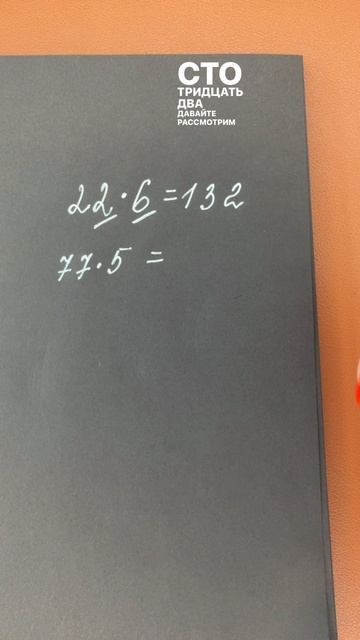 СТО
ТРИДЦАТЬ
ДВА
ДАВАЙТЕ
РАССМОТРИМ
22·6=132
77·5=